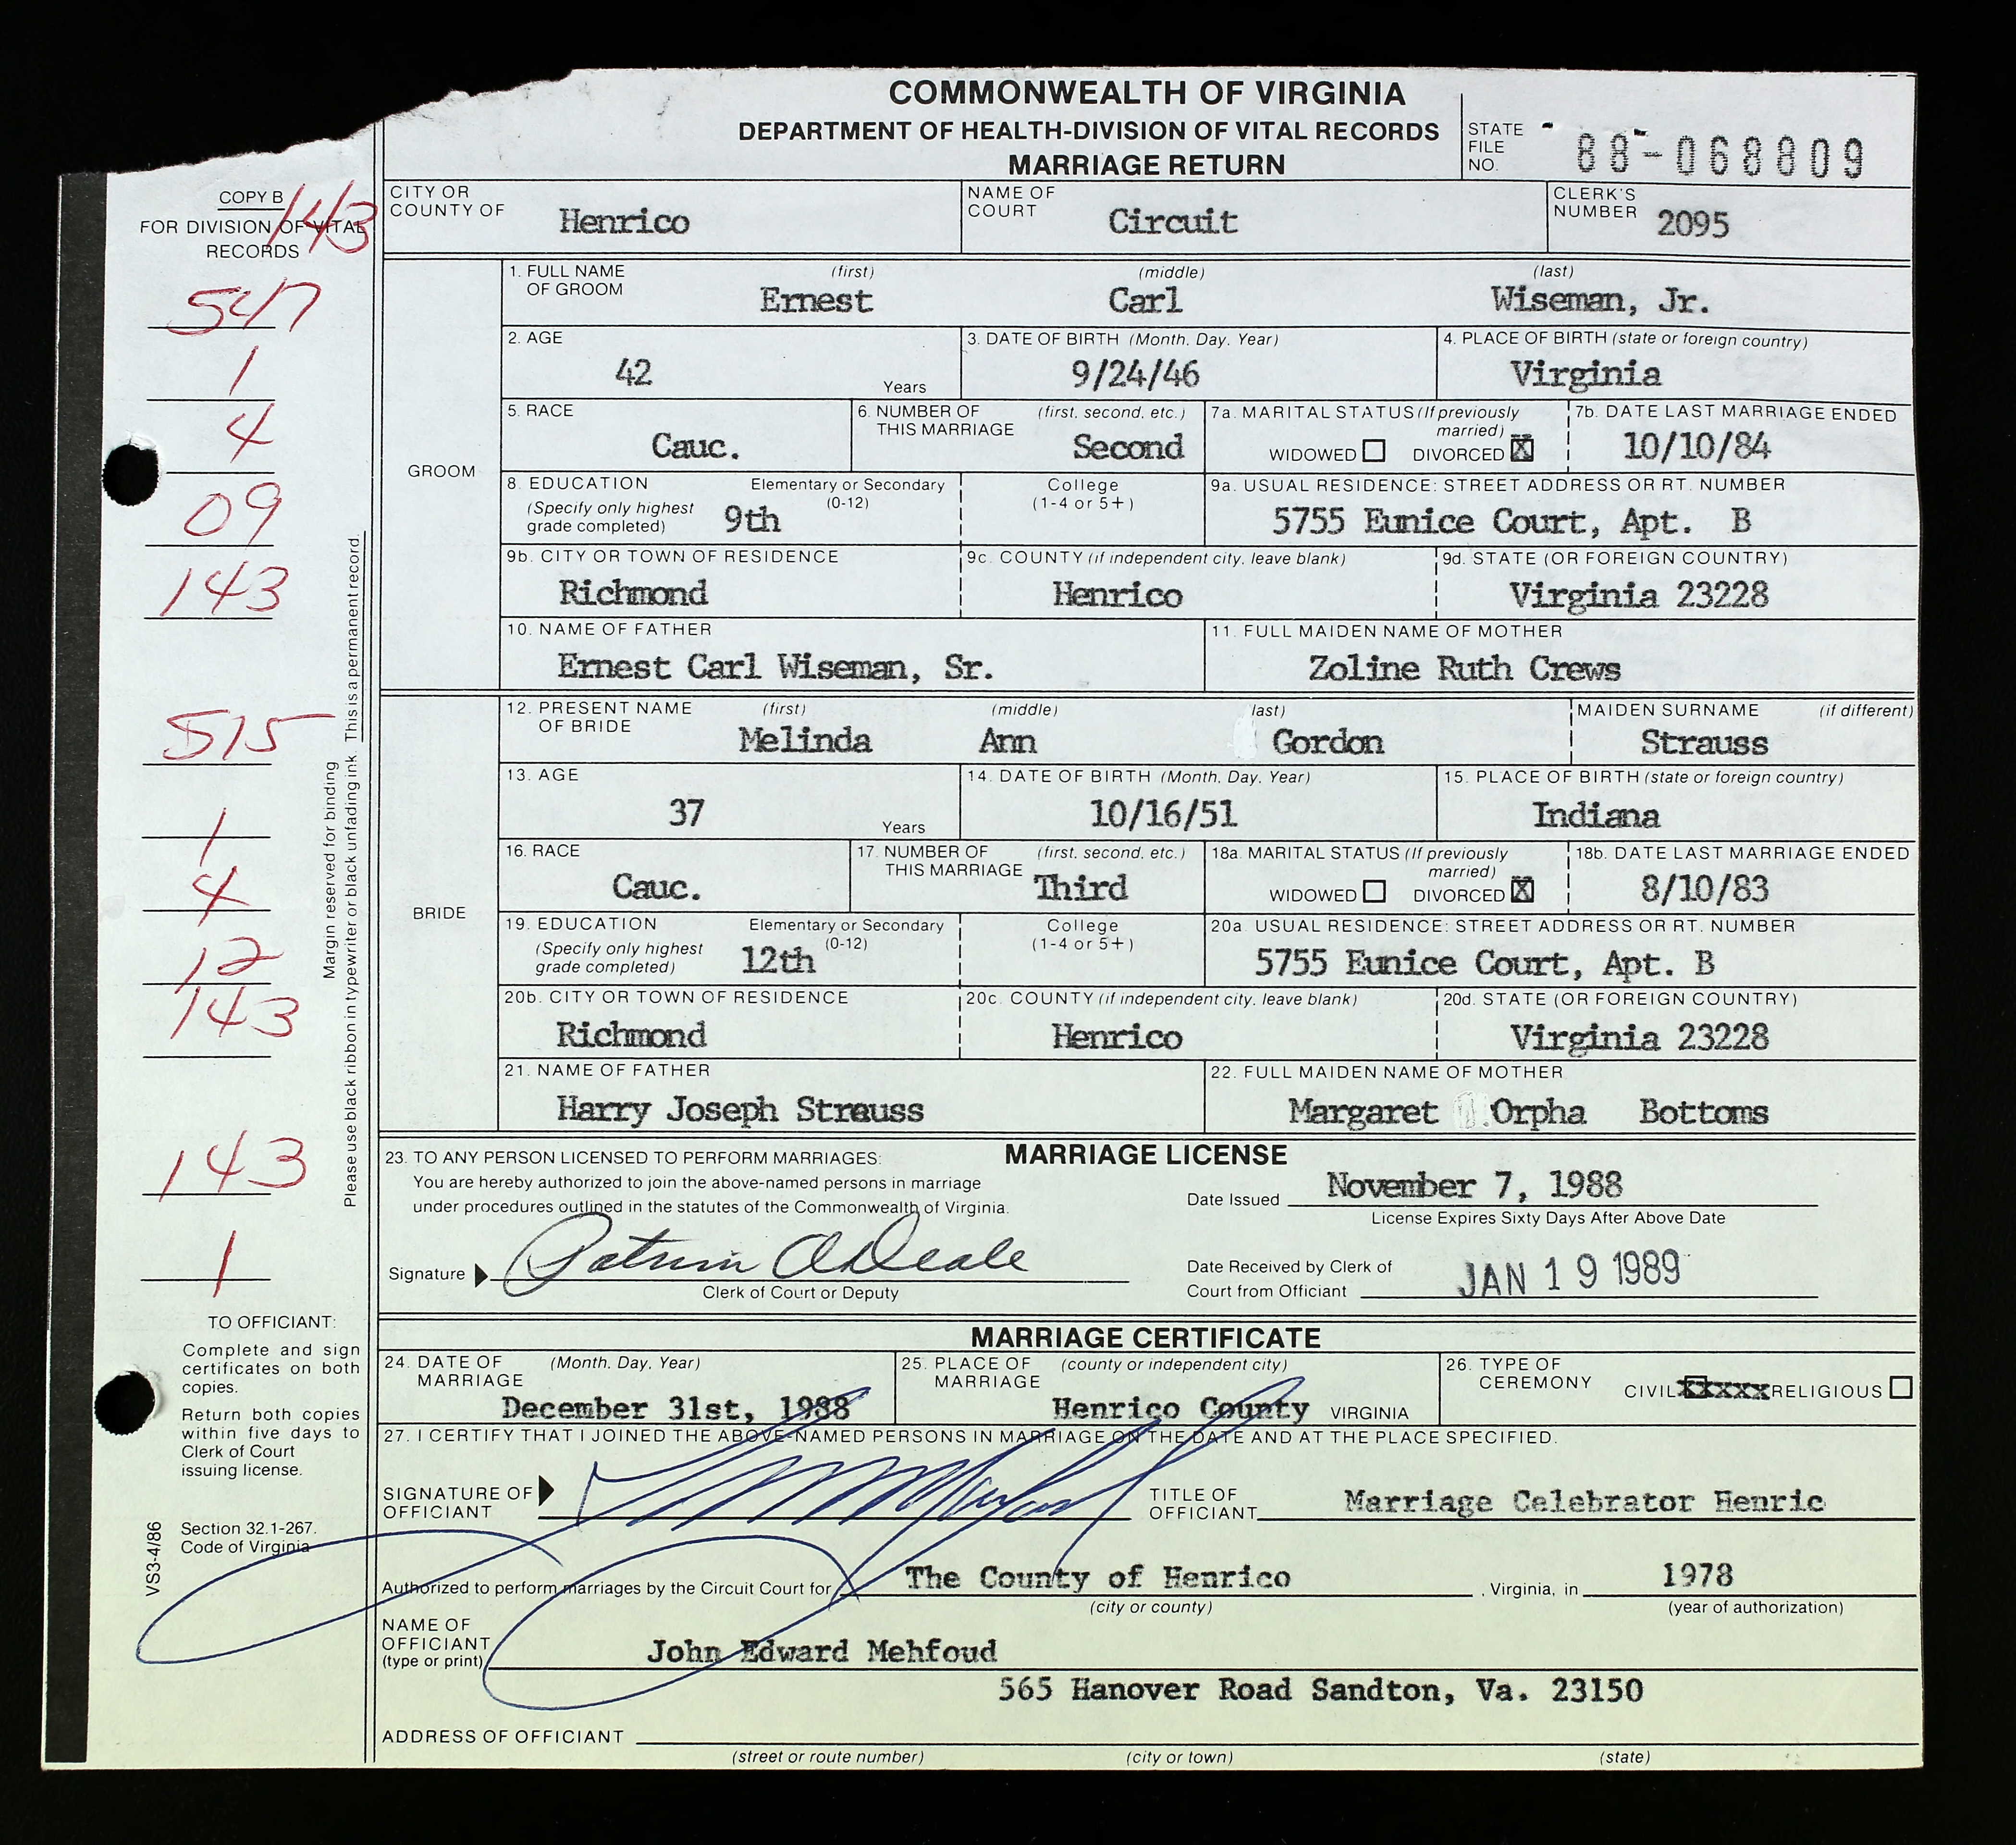 COMMONWEALTH OF VIRGINIA
DEPARTMENT OF HEALTH-DIVISION OF VITAL RECORDS
MARRIAGE RETURN
STATE FILE NO. 88-068809
COPY B
FOR DIVISION OF VITAL
RECORDS
143
547
1
4
09
143
515
1
4
12
143
143
1
Margin reserved for binding
Please use black ribbon in typewriter or black unfading ink. This is a permanent record.
TO OFFICIANT:
Complete and sign
certificates on both
copies.
Return both copies
within five days to
Clerk of Court
issuing license.
Section 32.1-267.
Code of Virginia
VS3-4/86
CITY OR COUNTY OF Henrico
NAME OF COURT Circuit
CLERK'S NUMBER 2095
GROOM
1. FULL NAME OF GROOM (first) Ernest (middle) Carl (last) Wiseman, Jr.
2. AGE 42 Years
3. DATE OF BIRTH (Month, Day, Year) 9/24/46
4. PLACE OF BIRTH (state or foreign country) Virginia
5. RACE Cauc.
6. NUMBER OF THIS MARRIAGE (first, second, etc.) Second
7a. MARITAL STATUS (If previously married) WIDOWED DIVORCED X
7b. DATE LAST MARRIAGE ENDED 10/10/84
8. EDUCATION (Specify only highest grade completed) Elementary or Secondary (0-12) 9th College (1-4 or 5+)
9a. USUAL RESIDENCE: STREET ADDRESS OR RT. NUMBER 5755 Eunice Court, Apt. B
9b. CITY OR TOWN OF RESIDENCE Richmond
9c. COUNTY (if independent city, leave blank) Henrico
9d. STATE (OR FOREIGN COUNTRY) Virginia 23228
10. NAME OF FATHER Ernest Carl Wiseman, Sr.
11. FULL MAIDEN NAME OF MOTHER Zoline Ruth Crews
BRIDE
12. PRESENT NAME OF BRIDE (first) Melinda (middle) Ann last) Gordon
MAIDEN SURNAME (if different) Strauss
13. AGE 37 Years
14. DATE OF BIRTH (Month, Day, Year) 10/16/51
15. PLACE OF BIRTH (state or foreign country) Indiana
16. RACE Cauc.
17. NUMBER OF THIS MARRIAGE (first, second, etc.) Third
18a. MARITAL STATUS (If previously married) WIDOWED DIVORCED X
18b. DATE LAST MARRIAGE ENDED 8/10/83
19. EDUCATION (Specify only highest grade completed) Elementary or Secondary (0-12) 12th College (1-4 or 5+)
20a. USUAL RESIDENCE: STREET ADDRESS OR RT. NUMBER 5755 Eunice Court, Apt. B
20b. CITY OR TOWN OF RESIDENCE Richmond
20c. COUNTY (if independent city, leave blank) Henrico
20d. STATE (OR FOREIGN COUNTRY) Virginia 23228
21. NAME OF FATHER Harry Joseph Strauss
22. FULL MAIDEN NAME OF MOTHER Margaret Orpha Bottoms
MARRIAGE LICENSE
23. TO ANY PERSON LICENSED TO PERFORM MARRIAGES:
You are hereby authorized to join the above-named persons in marriage
under procedures outlined in the statutes of the Commonwealth of Virginia.
Date Issued November 7, 1988
License Expires Sixty Days After Above Date
Signature
Clerk of Court or Deputy
Date Received by Clerk of
Court from Officiant JAN 19 1989
MARRIAGE CERTIFICATE
24. DATE OF MARRIAGE (Month, Day, Year) December 31st, 1988
25. PLACE OF MARRIAGE (county or independent city) Henrico County VIRGINIA
26. TYPE OF CEREMONY CIVIL XXXXX RELIGIOUS
27. I CERTIFY THAT I JOINED THE ABOVE-NAMED PERSONS IN MARRIAGE ON THE DATE AND AT THE PLACE SPECIFIED.
SIGNATURE OF OFFICIANT
TITLE OF OFFICIANT Marriage Celebrator Henric
Authorized to perform marriages by the Circuit Court for The County of Henrico, Virginia, in 1978
(city or county) (year of authorization)
NAME OF OFFICIANT (type or print) John Edward Mehfoud
565 Hanover Road Sandton, Va. 23150
ADDRESS OF OFFICIANT
(street or route number) (city or town) (state)